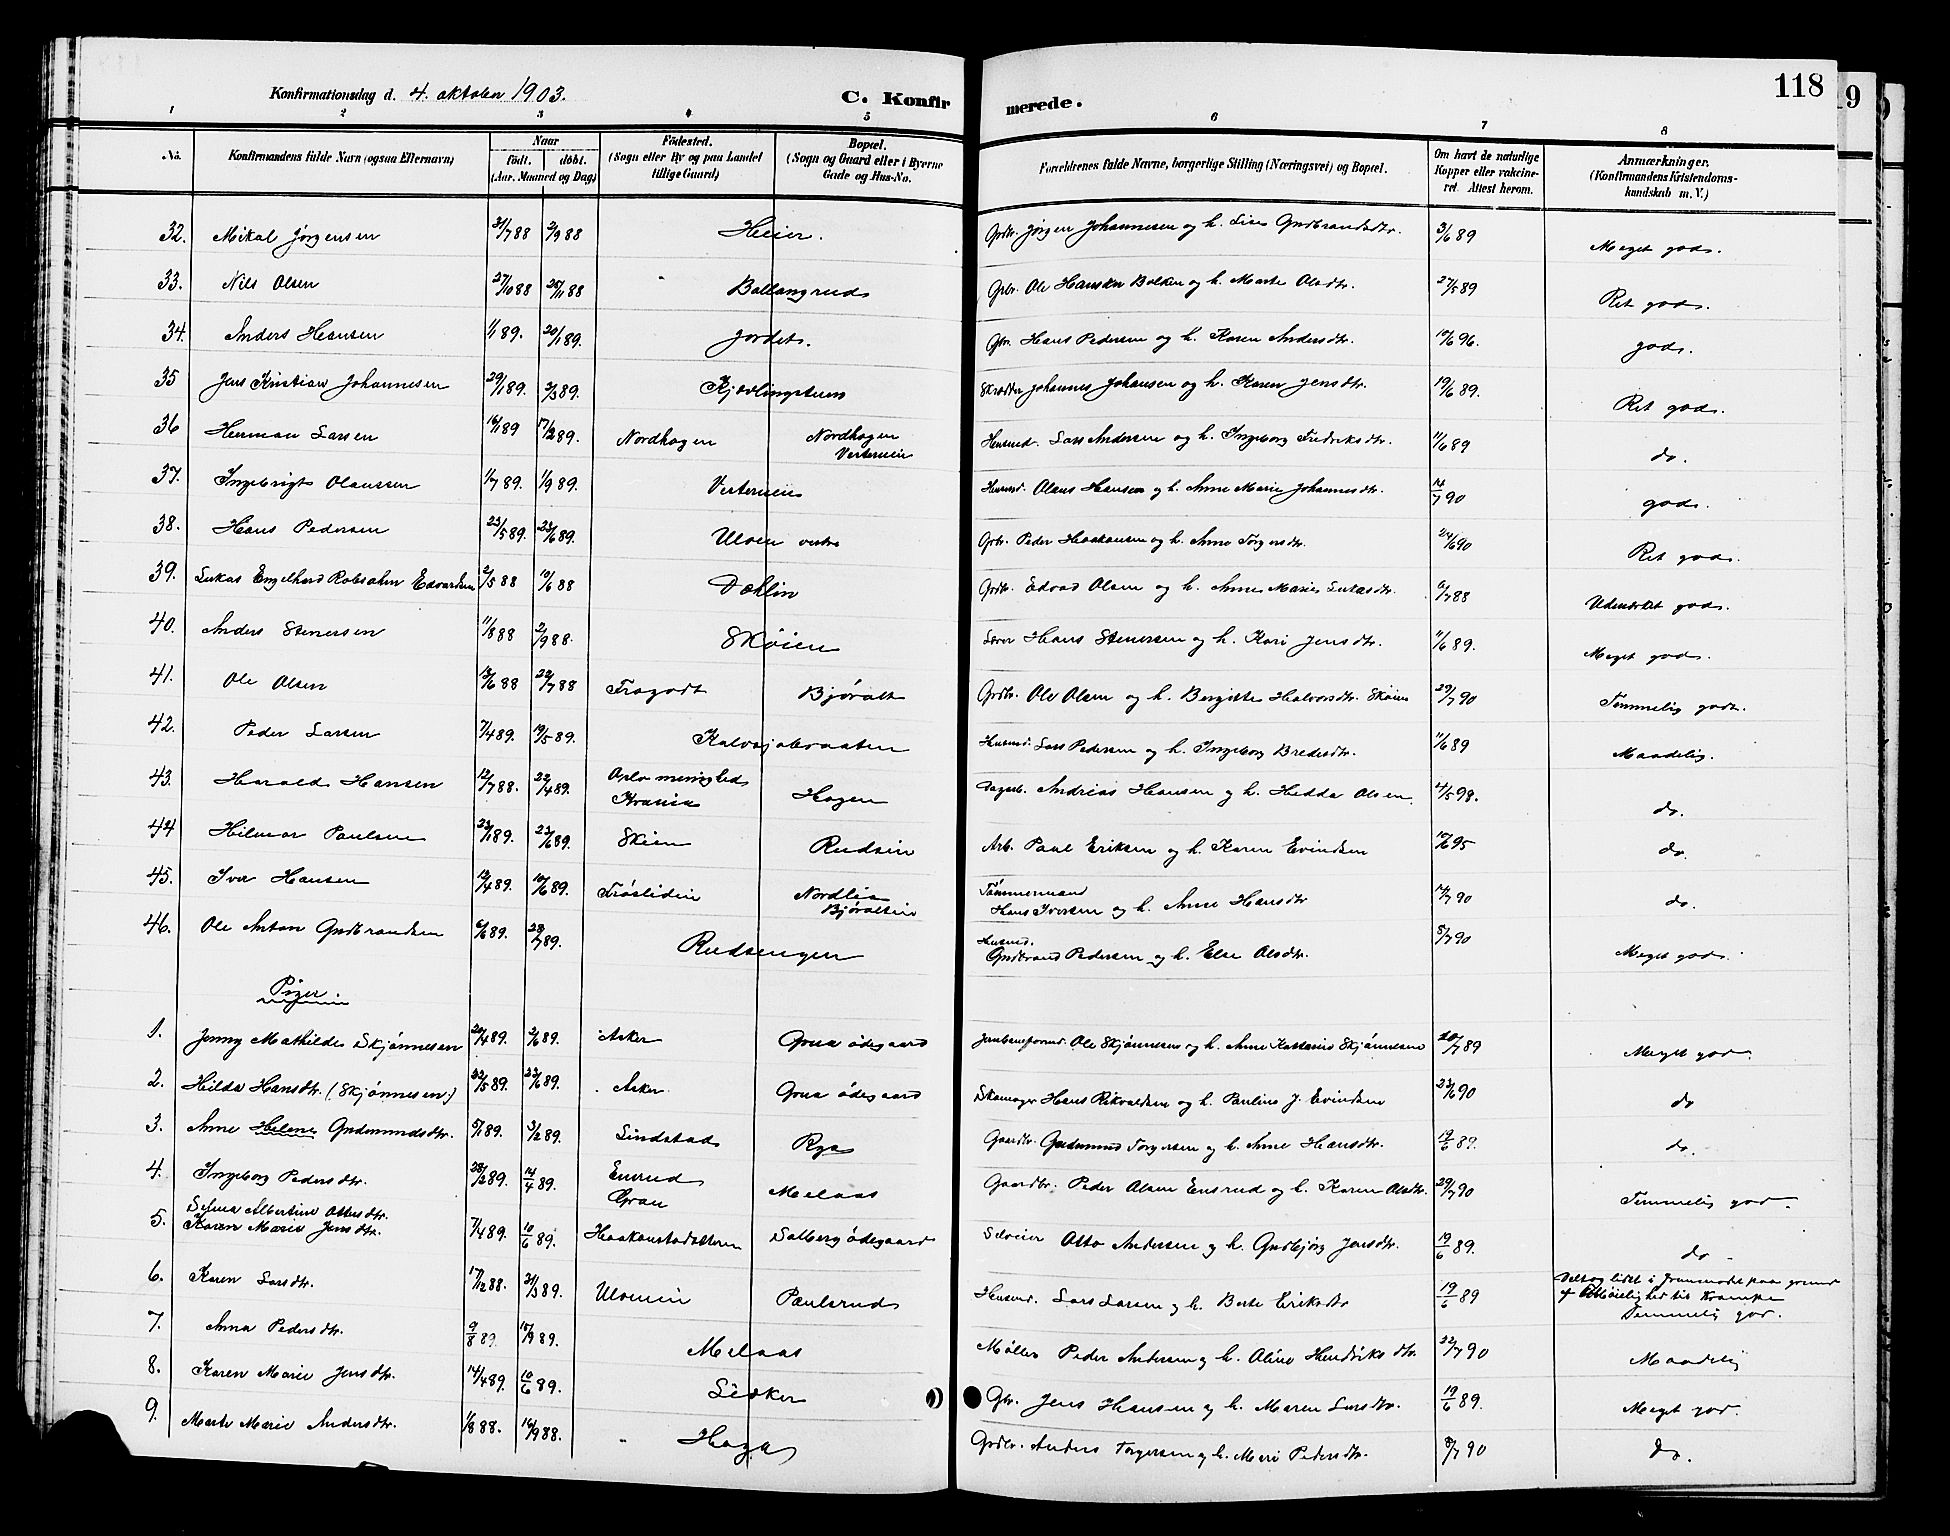 118
9
Konfirmationsdag d. 4. oktober 1903. C. Konfirmerede.
1 2 3 4 5 6 7 8
No. Konfirmandens fulde Navn (ogsaa Efternavn) Naar födt. döbt. (Aar, Maaned og Dag) Födested. (Sogn eller By og paa Landet tillige Gaard) Bopæl. (Sogn og Gaard eller i Byerne Gade og Hus-No. Forældrenes fulde Navne, borgerlige Stilling (Næringsvei) og Bopæl. Om havt de naturlige Kopper eller vakcineret. Attest herom. Anmærkninger. (Konfirmandens Kristendomskundskab m. V.)
32. Mikal Jörgensen 31/7 88 2/9 88 Heier. Grdbr. Jörgen Johannesen og h. Lise Gudbrandsdtr. 3/6 89 Meget god.
33. Nils Olsen 27/10 88 25/11 88 Ballangrud Gbr. Ole Hansen Bolken og h. Marte Olsdtr. 27/5 89 Ret god.
34. Anders Hansen 1/1 89. 20/1 89. Jordet. Gbr. Hans Pedersen og h. Karen Andersdtr. 10/6 96. god.
35 Jens Kristian Johannesen 29/1 89. 3/3 89. Skrædder Johannes Johansen og h. Karen Jensdtr. 19/6 89. Ret god.
36 Herman Larsen 16/1 89 17/2 89. Nordhagen Nordhagen Husmd. Lars Andersen og h. Ingeborg Fredriksdtr. 11/6 89 do.
37. Ingebrigt Olaussen 1/7 89. 1/9 89. Husmd. Olaus Hansen og h. Anne Marie Johannesdtr. 14/7 90 god.
38. Hans Pedersen 23/5 89. 23/6 89. Uloen Gbr. Peder Haakensen og h. Anne Torgersdtr. 24/6 90 Ret god.
39. Lukas Engelhard Robsahm Edvardsen 2/5 88 10/6 88 Dæhlin Grdbr. Edvard Olsen og h. Anne Marie Lukasdtr. 6/7 88 Udmerket god.
40. Anders Stenersen 11/8 88 2/9 88. Skøien Hans Stenersen og h. Kari Jensdtr. 11/6 89. Meget god.
41. Ole Olsen 13/6 88 22/7 88 Tragodt Björalt Grdbr. Ole Olsen og h. Bergitte Halvorsdtr. Skøien 29/7 90 Temmelig god.
42. Peder Larsen 7/4 89. 19/5 89. Kalvsjöbraaten Husmd. Lars Pedersen og h. Ingeborg Bredesdtr. 11/6 89 Maadelig.
43. Harald Hansen 12/7 88. 22/4 89. Oslo menighed Krania Hagen Dagarb. Andreas Hansen og h. Hedda Olsen. 4/5 98. do.
44 Hilmar Paulsen 23/1 89. 23/6 89. Skien Rudsein Arb. Paul Eriksen og h. Karen Evindsen 10/6 95 do.
45. Iver Hansen 12/4 89. 10/6 89. Fröslidin Nordlia Björalsein Tømmermand Hans Iversen og h. Anne Hansdtr 14/7 90 do.
46. Ole Anton Gudbrandsen 6/6 89. 28/7 89. Rudsengen Husmd. Gudbrand Pedersen og h. Else Olsdtr. 8/7 90 Meget god.
Piger
1. Jenny Mathilde Skjönnesen 20/4 89. 2/6 89. Asker Grua ödegaard Ole Skjönnesen og h. Anne Katharine Skjönnesen 20/7 89 Meget god
2. Hilda Hansdtr. (Skjönnesen) 22/5 89. 23/6 89. Asker Grua ödegaard Skomager Hans Rikvaldsen og h. Pauline J. Evindsen 23/6 90 do
3. Anne Helene Gudmundsdtr. 5/1 89. 3/2 89. Lindstad Rya Gaardbr. Gudmund Torgersen og h. Anne Hansdtr. 19/6 89. do.
4. Ingeborg Pedersdtr. 28/2 89. 14/4 89. Ensrud Gran Melaas Gaardbr. Peder Olsen Ensrud og h. Karen Olsdtr. 29/7 90 Temmelig god.
Selma Albertine Ottosdtr.
5. Karen Marie Jensdtr. 7/4 89. 10/6 89. Solberg ödegaard Selveier Otto Andersen og h. Gudbjörg Jonsdtr. 19/6 89. do
6. Karen Larsdtr. 17/12 88. 31/3 89. Uloeiin Paulsrud Husmd. Lars Larsen og h. Berte Eriksdtr 19/6 89 Deltog lidet i paa grund af Tilböielighed til Krampe Temmelig god.
7. Anna Pedersdtr. 9/8 89. 15/9 89. Melaas Møller Peder Andersen og h. Oline Hendriksdtr 22/7 90 Maadelig
8. Karen Marie Jensdtr. 14/4 89. 10/6 89. Lisker Gbr. Jens Hansen og h. Maren Larsdtr. 19/6 89. Meget god.
9. Marte Marie Andersdtr. 1/8 88. 16/9 88. Haga Grdbr. Anders Torgersen og h. Mari Pedersdtr. 8/7 90 do.